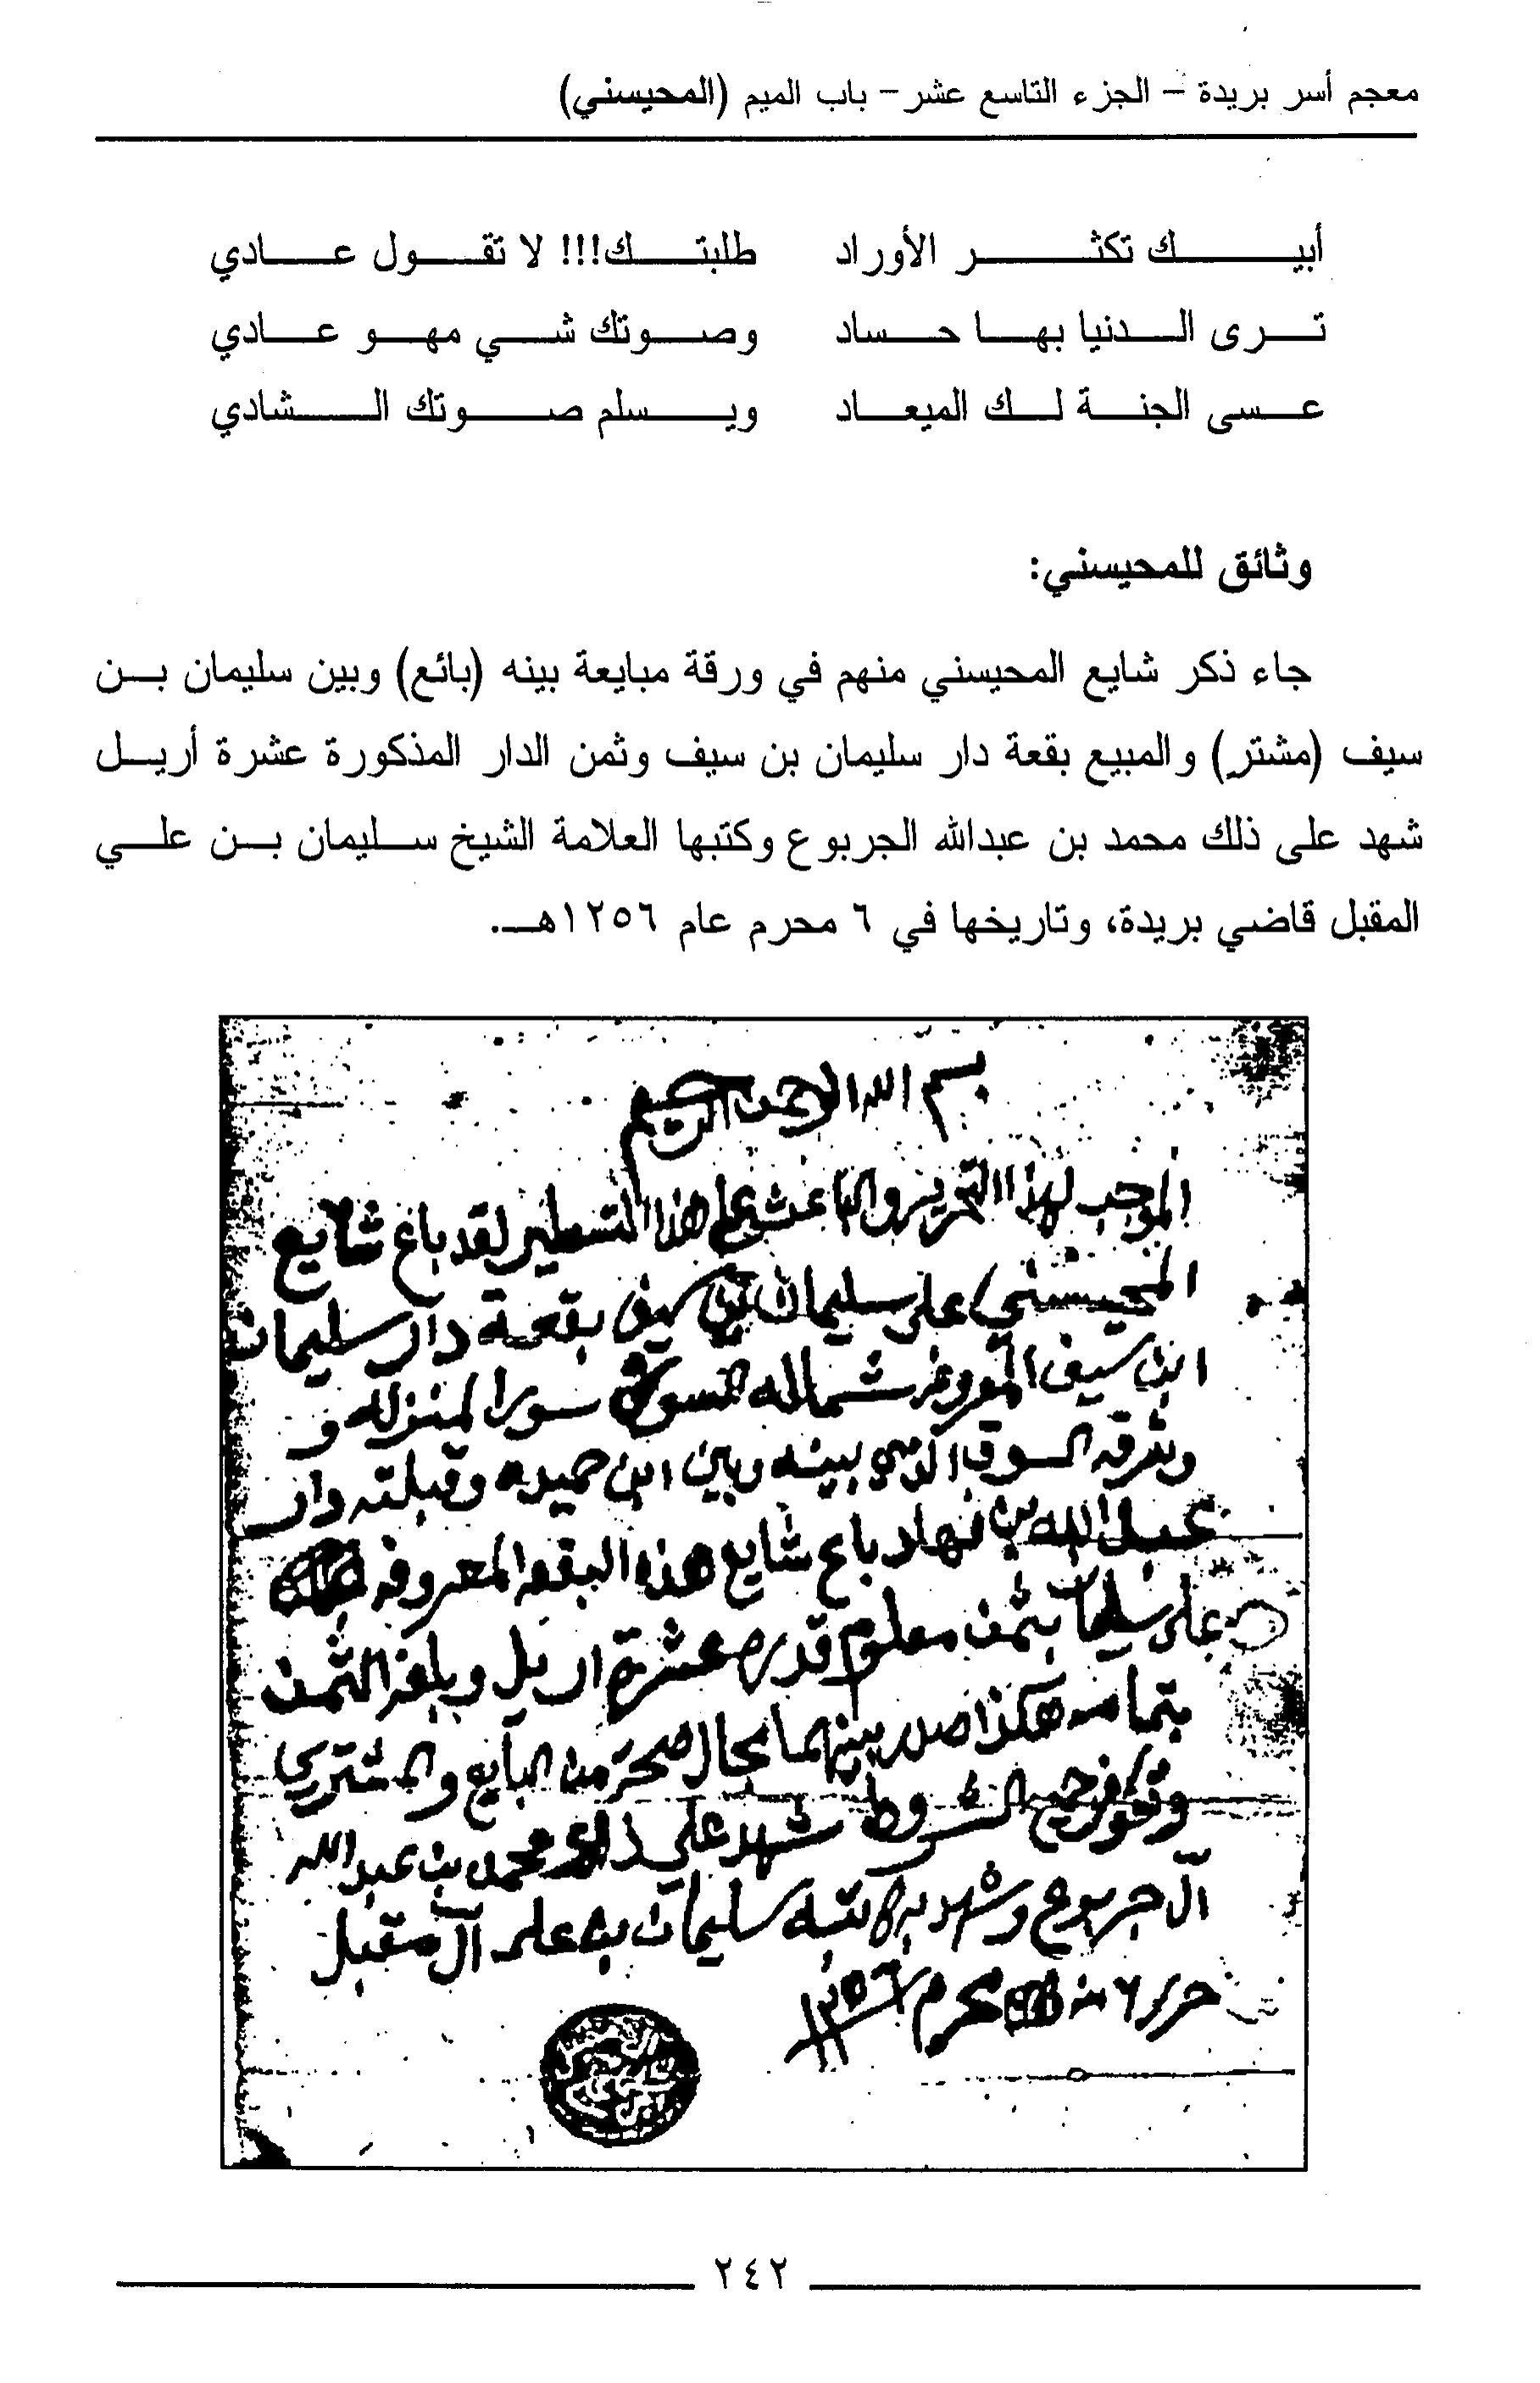 معجم أسر بريدة – الجزء التاسع عشر – باب الميم (المحيسني)
أبيك تكثر الأوراد طلبتك!!! لا تقول عادي
ترى الدنيا بها حساد وصوتك شي مهو عادي
عسى الجنة لك الميعاد ويسلم صوتك الشادي
وثائق للمحيسني:
جاء ذكر شايع المحيسني منهم في ورقة مبايعة بينه (بائع) وبين سليمان بن
سيف (مشترٍ) والمبيع بقعة دار سليمان بن سيف وثمن الدار المذكورة عشرة أريل
شهد على ذلك محمد بن عبدالله الجربوع وكتبها العلامة الشيخ سليمان بن علي
المقبل قاضي بريدة، وتاريخها في ٦ محرم عام ١٢٥٦هـ.
بسم الله الرحمن الرحيم
الموجب لهذا التحرير والباعث على هذا التسطير لقد باع شايع
المحيسني على سليمان ابن سيف بقعة دار سليمان
ابن سيف المعروفه شماله السوق سور المنزله و
وشرقه السوق الذي بينه وبين ابن حميده وقبلته دار
عبد الله بن نهاد باع شايع هذه البقعه المعروفه
على سليمان بثمن معلوم قدره عشرة اريل وبلغه الثمن
بتمامه هكذا صدر بينهما بحال صحة من البايع والمشتري
وتوفر جميع الشروط شهد على ذلك محمد بن عبد الله
ال جربوع وشهد به كاتبه سليمان بن علي آل مقبل
حرر ٦ من محرم ١٢٥٦
٢٤٢